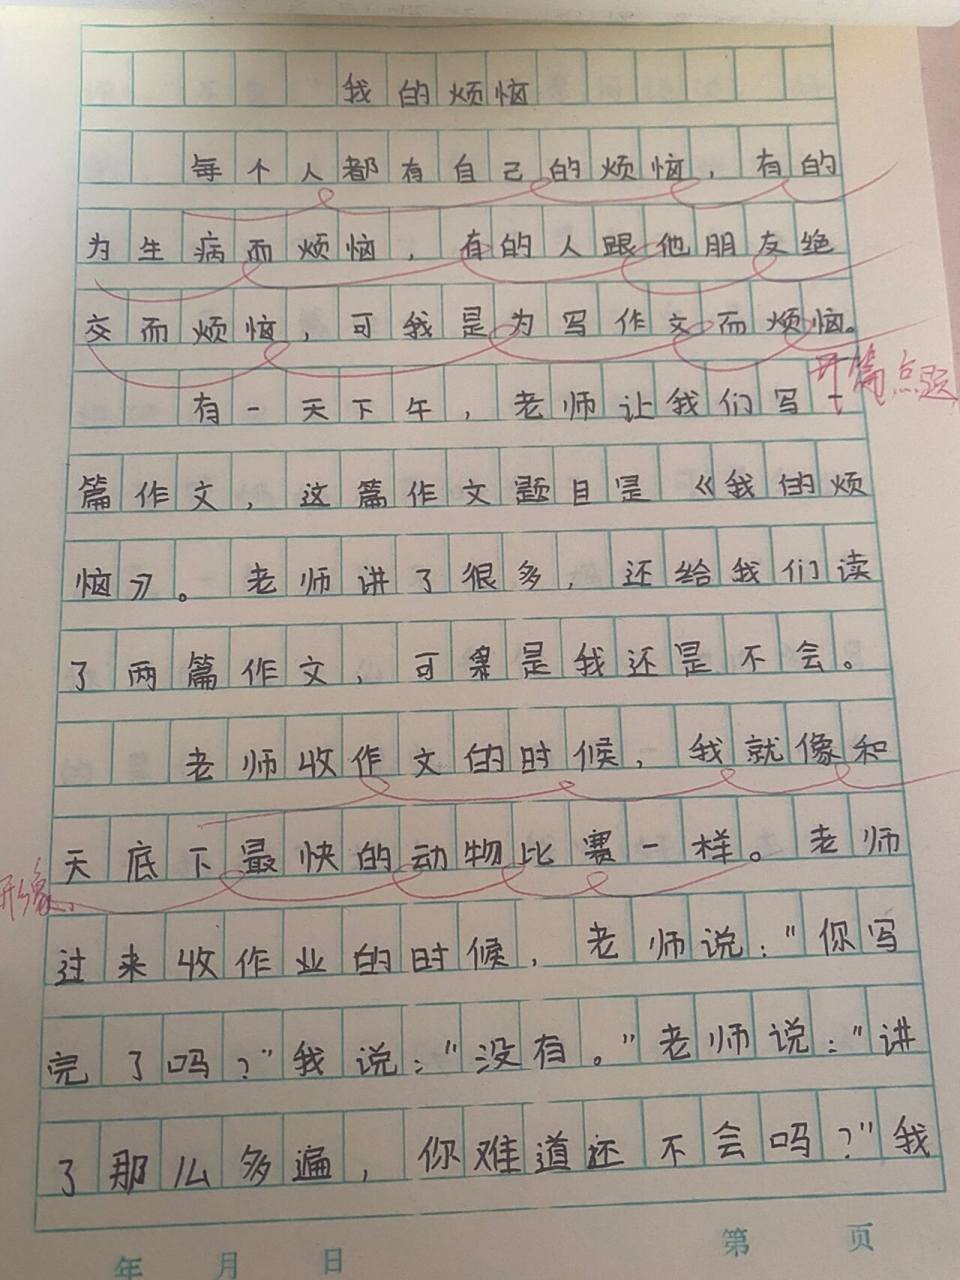 我的烦恼
每个人都有自己的烦恼，有的
为生病而烦恼，有的人跟他朋友绝
交而烦恼，可我是为写作文而烦恼。
开篇点题
有一天下午，老师让我们写一
篇作文，这篇作文题目是《我的烦
恼》。老师讲了很多，还给我们读
了两篇作文，可是我还是不会。
老师收作文的时候，我就像和
天底下最快的动物比赛一样。老师
形象、
过来收作业的时候，老师说："你写
完了吗？"我说："没有。"老师说："讲
了那么多遍，你难道还不会吗？"我
年 月 日
第 页